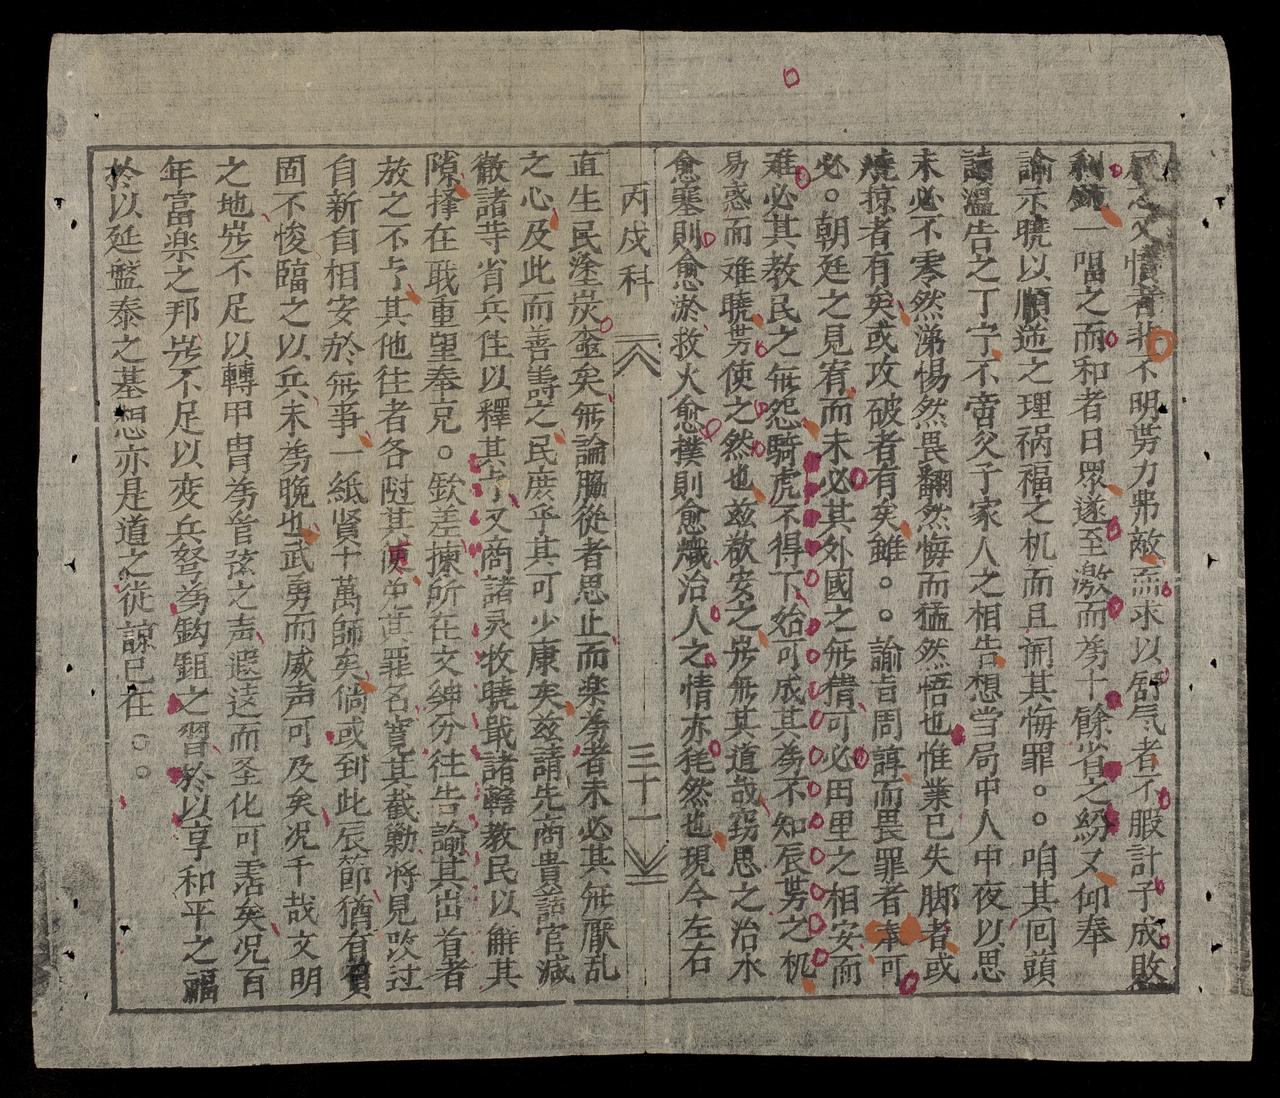 又憤者非不明勢力弗敵而求以舒気者不暇計予成敗
利鈍一唱之而和者日眾遂至激而為十餘省之紛又仰奉
諭示曉以順逆之理祸福之机而且開其悔罪○○咱其回頭
溫告之丁宁不啻父子家人之相告想当局中人中夜以思
未必不零然涕惕然畏翻然悔而猛然悟也惟業已失脚者或
燒掠者有矣或攻破者有矣雖○○諭旨周諄而畏罪者奉可
必○朝廷之見宥而未必其外國之無猜可必田里之相安而
难必其教民之無怨騎虎不得下始可成其為不知辰势之机
易惑而难曉势使之然也兹欲安之岂無其道哉窃思之治水
愈塞則愈淤救火愈撲則愈熾治人之情亦犹然也現今左右
丙戌科 三十一
直生民塗炭奎矣無論脇從者思止而楽為者未必其無厭乱
之心及此而善壽之民庶乎其可少康矣兹請先商貴話官减
徹諸寺省兵住以釋其又商諸灵牧曉戢諸轄教民以觧其
隙擇在戢重望奉克○欽差揀所在文紳分往告諭其出首者
放之不亐其他往者各陡其便免直罪名寬其截勦将見改过
自新自相安於無爭一紙賢十萬師矣倘或到此辰節猶有
固不悛臨之以兵未為晚也武勇而威声可及矣况千哉文明
之地岂不足以轉甲胄為管弦之声遐逺而圣化可沾矣况百
年富楽之邦岂不足以変兵弩為鈎鉏之習於以享和平之福
於以延盤泰之基想亦是道之從諒已在○○